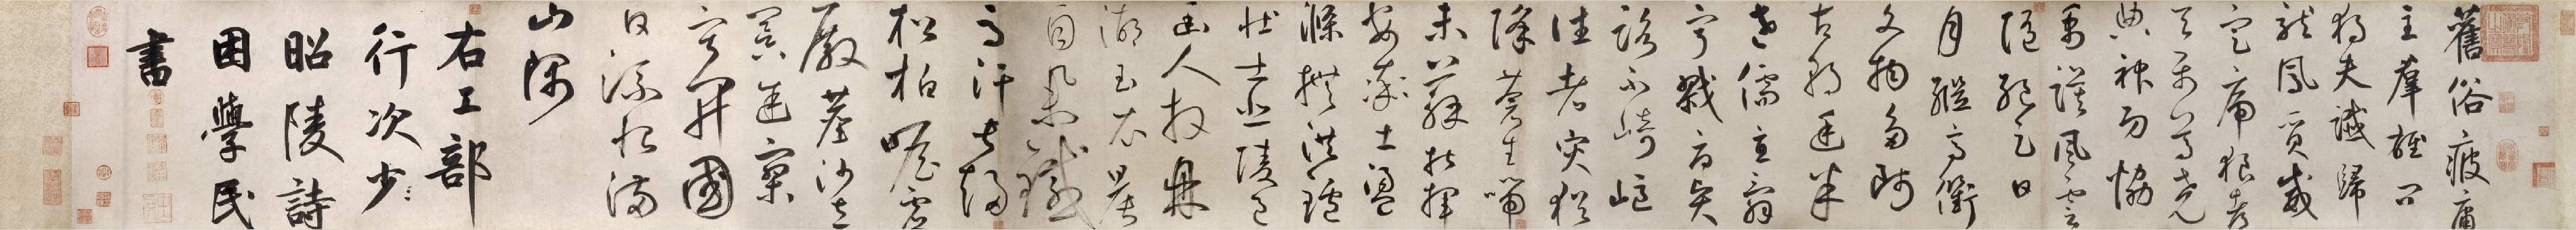 舊俗疲庸
主羣雄問
獨夫讖歸
龍鳳質威
定虎狼都
天屬尊堯
典神功協
禹謨風雲
隨絕足日
月繼高衢
文物多師
古朝廷半
老儒直詞
寧戮辱賢
路不崎嶇
往者災猶
降蒼生喘
未蘇指揮
安率土盪
滌撫洪爐
壯士悲陵邑
幽人拜鼎
湖玉衣晨
自舉鐵
馬汗常趨
松柏瞻虛
殿塵沙立
暝途寂
寥開國
日流恨滿
山隅
右工部
行次少〻
昭陵詩
困學民
書